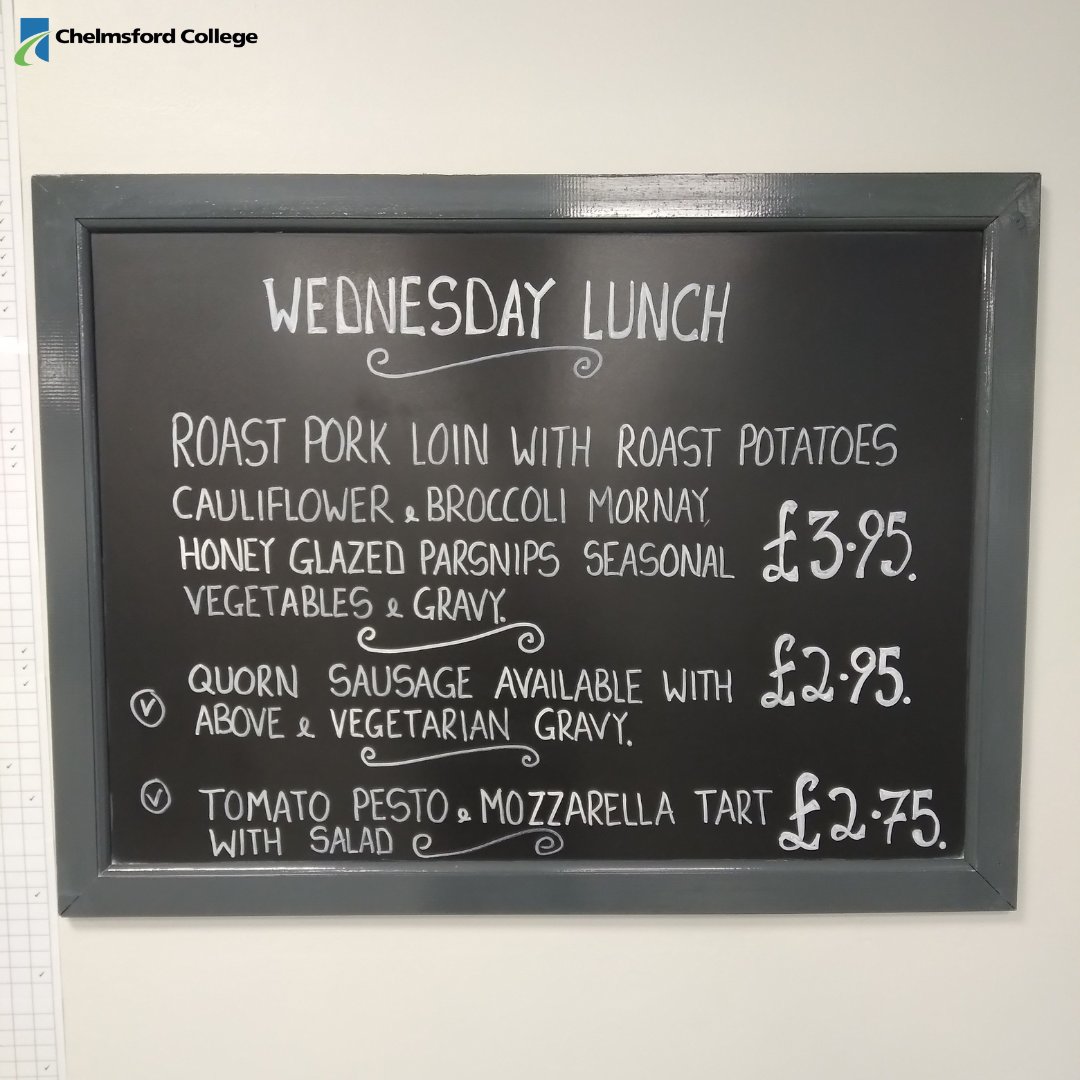 Chelmsford College
WEDNESDAY LUNCH
ROAST PORK LOIN WITH ROAST POTATOES
CAULIFLOWER & BROCCOLI MORNAY,
HONEY GLAZED PARSNIPS SEASONAL
VEGETABLES & GRAVY.
£3.95.
QUORN SAUSAGE AVAILABLE WITH
£2.95.
V ABOVE & VEGETARIAN GRAVY.
V TOMATO PESTO & MOZZARELLA TART £2.75.
WITH SALAD